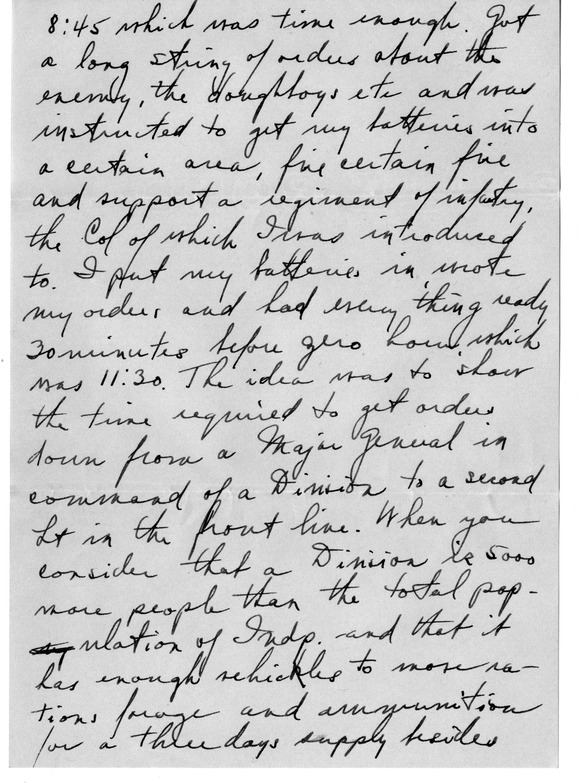 8:45 which was time enough. Got
a long string of orders about the
enemy, the doughboys etc and was
instructed to get my batteries into
a certain area, fire certain fire
and support a regiment of infatry,
the Col of which I was introduced
to. I put my batteries in wrote
my orders and had every thing ready
30 minutes before zero hour which
was 11:30. The idea was to show
the time required to get orders
down from a Major General in
command of a Division to a second
Lt in the front line. When you
consider that a Division is 5000
more people than the total pop-
ulation of Indp. and that it
has enough vehickles to move ra-
tions forage and ammunition
for a three days supply besides